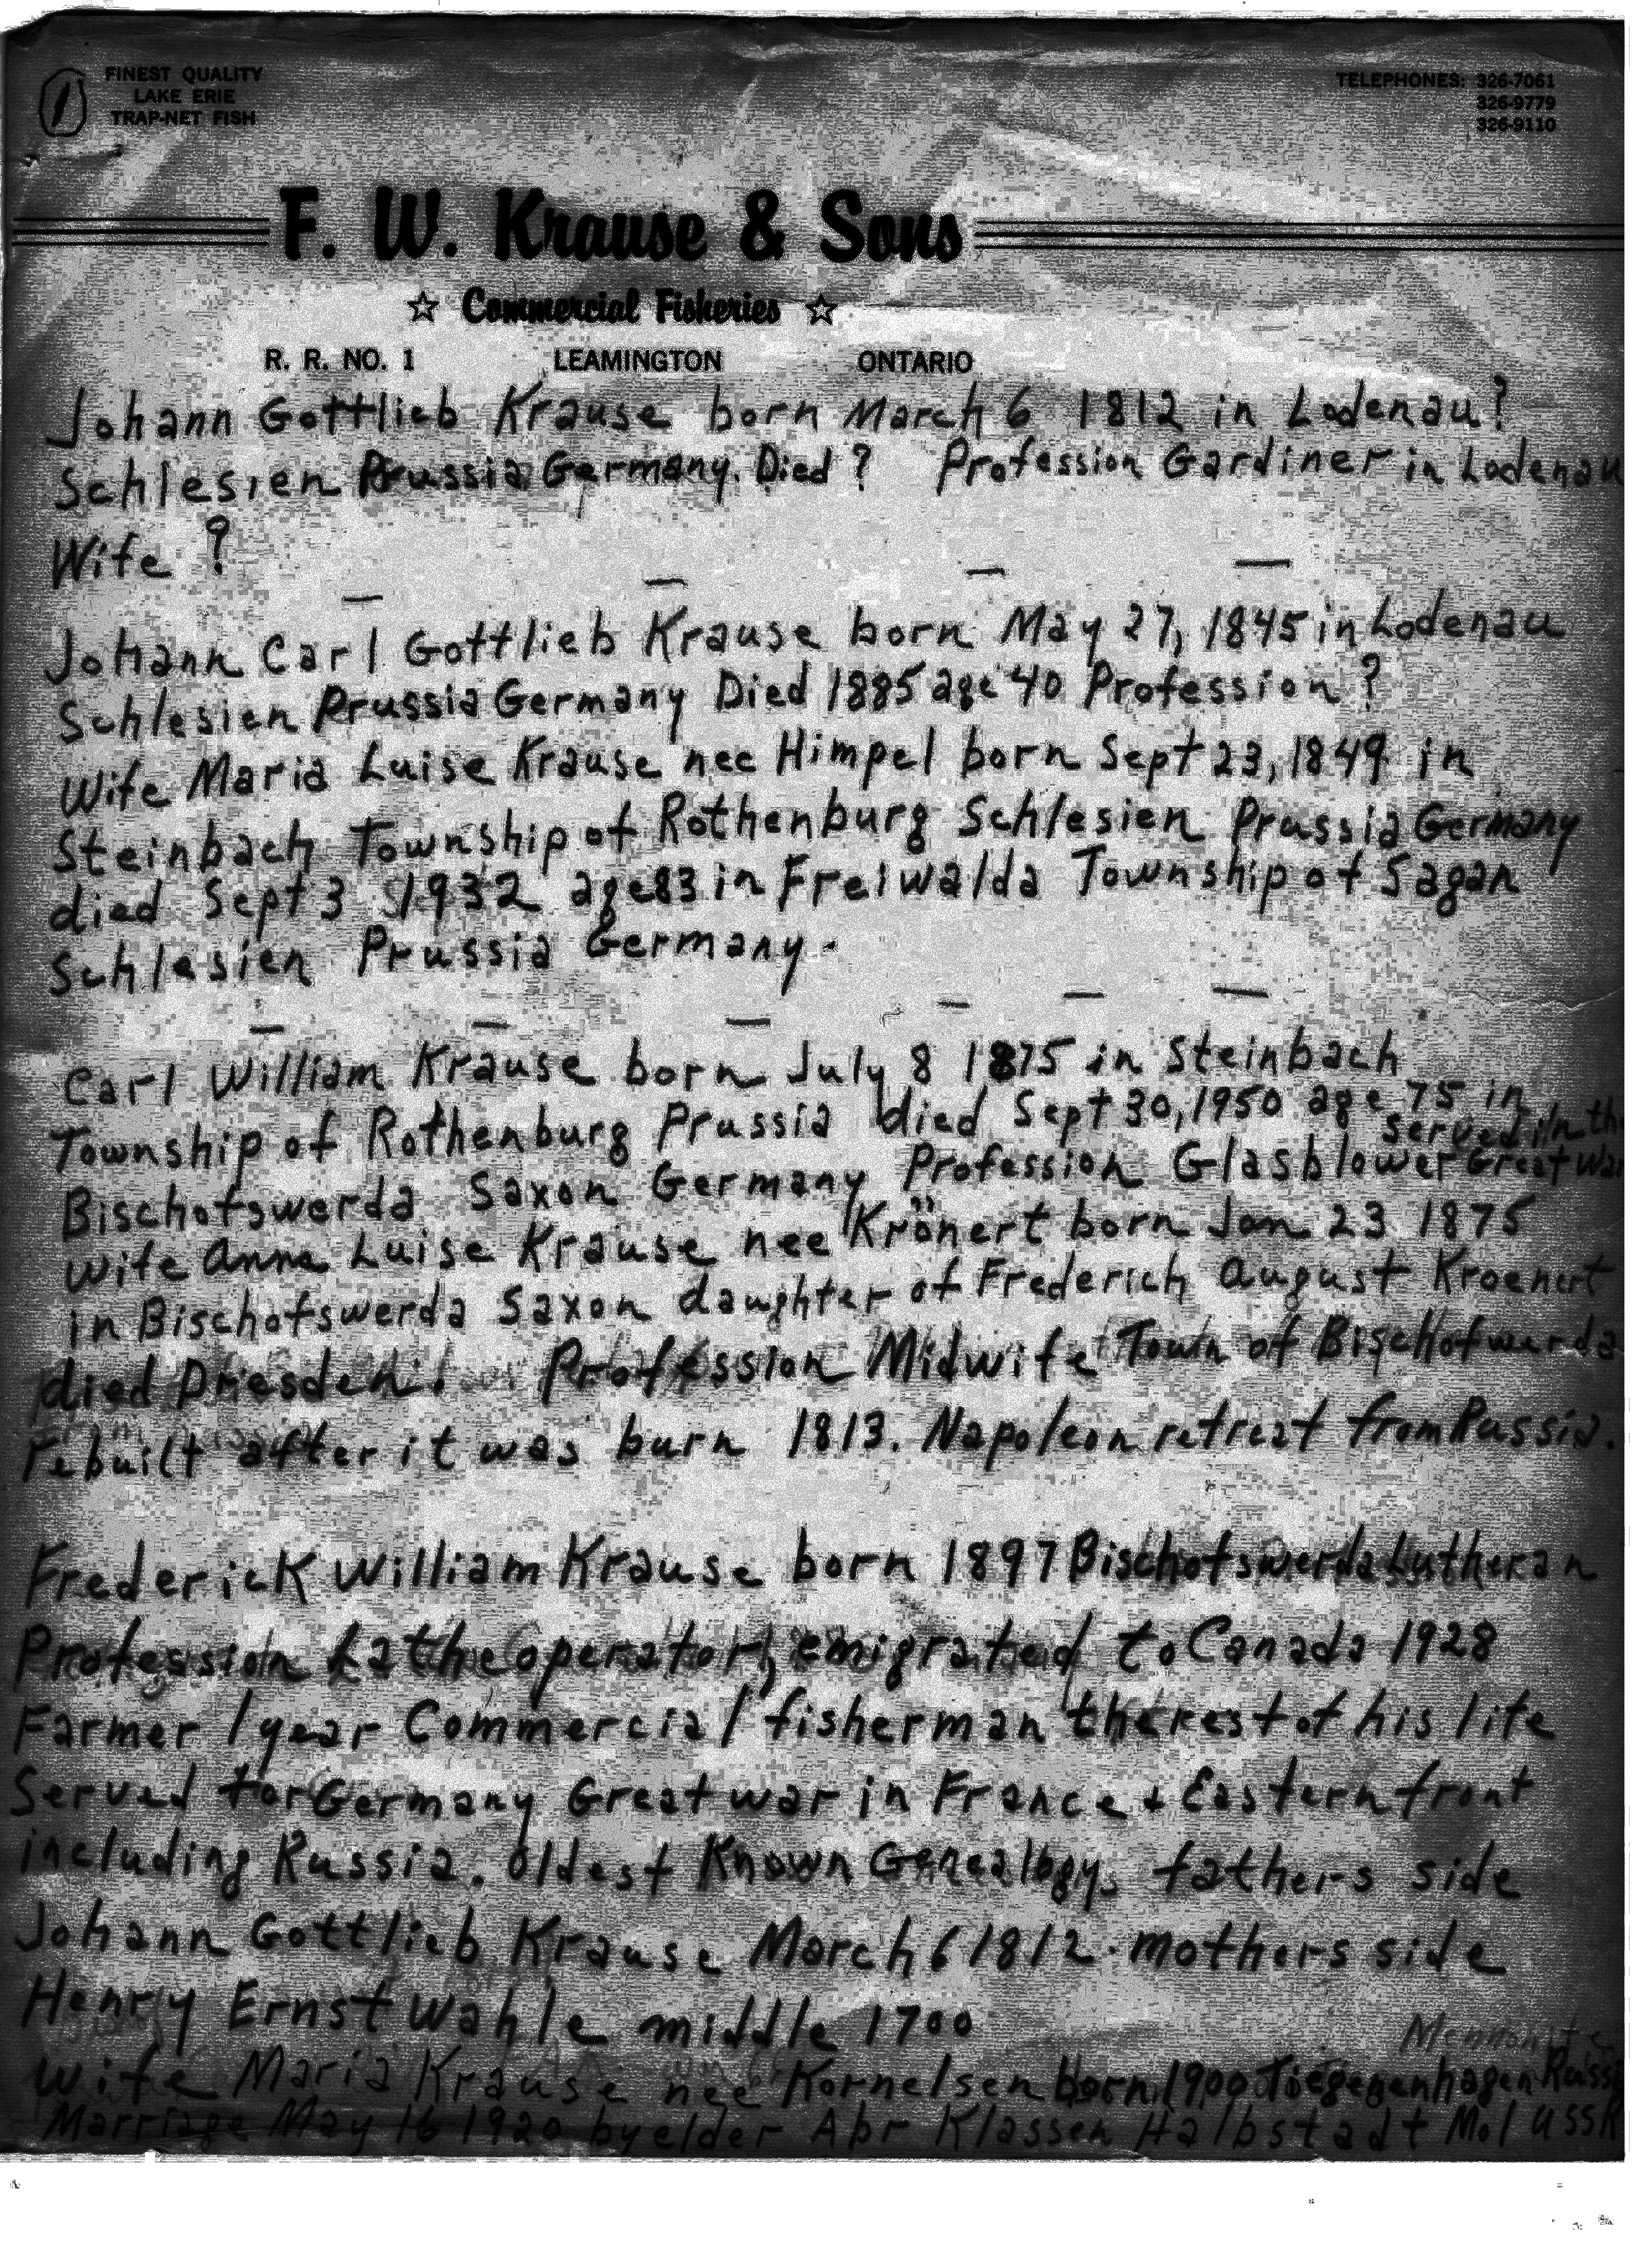 1
FINEST QUALITY
LAKE ERIE
TRAP-NET FISH
TELEPHONES: 326-7061
326-9779
326-9110
F. W. Krause & Sons
☆ Commercial Fisheries ☆
R. R. NO. 1 LEAMINGTON ONTARIO
Johann Gottlieb Krause born March 6 1812 in Lodenau?
Schlesien Prussia Germany. Died ? Profession Gardiner in Lodenau
Wife ?
Johann Carl Gottlieb Krause born May 27, 1845 in Lodenau
Schlesien Prussia Germany Died 1885 age 40 Profession ?
Wife Maria Luise Krause nee Himpel born Sept 23, 1849 in
Steinbach Township of Rothenburg Schlesien Prussia Germany
died Sept 3 1932 age 83 in Freiwalda Township of Sagan
Schlesien Prussia Germany.
Carl William Krause born July 8 1875 in Steinbach
Township of Rothenburg Prussia died Sept 30, 1950 age 75 in
Bischofswerda Saxon Germany Profession Glasblower served in the Great War
Wife Anna Luise Krause nee Krönert born Jan 23 1875
in Bischofswerda Saxon daughter of Frederich August Kroenert
died Driesden. Profession Midwife Town of Bischofwerda
rebuilt after it was burn 1813. Napoleon retreat from Russia.
Frederick William Krause born 1897 Bischofswerda Lutheran
Profession Lathe operator, emigrated to Canada 1928
Farmer 1 year Commercial fisherman the rest of his life
Served for Germany Great war in France & Eastern front
including Russia. Oldest Known Genealogy. fathers side
Johann Gottlieb Krause March 6 1812. mothers side
Henry Ernst Wahle middle 1700
Mennonite
wife Maria Krause nee Kornelsen born 1900 Tiegegenhagen Russia
Marriage May 16 1920 by elder Abr Klassen Halbstadt Mol USSR